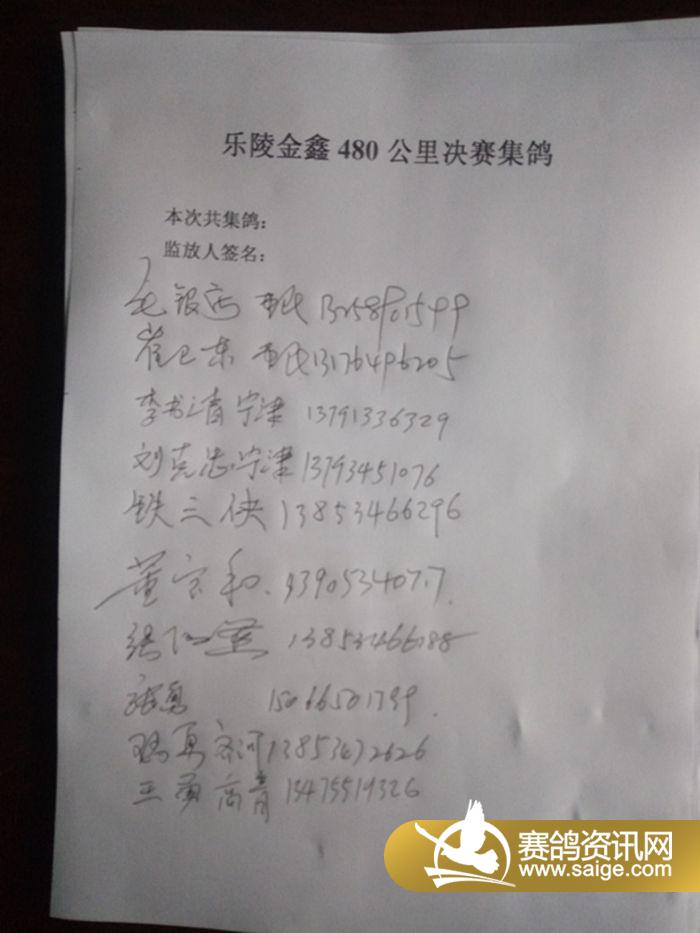 乐陵金鑫480公里决赛集鸽
本次共集鸽：
监放人签名：
毛银 13258901599
崔卫东 13176496205
李书清宁津 13791336329
刘克忠宁津 13793451076
铁三侠 13853466296
董宝和 13905340717
张 13853466188
15066501799
齐河 13853472626
王勇高青 13475519326
赛鸽资讯网
www.saige.com